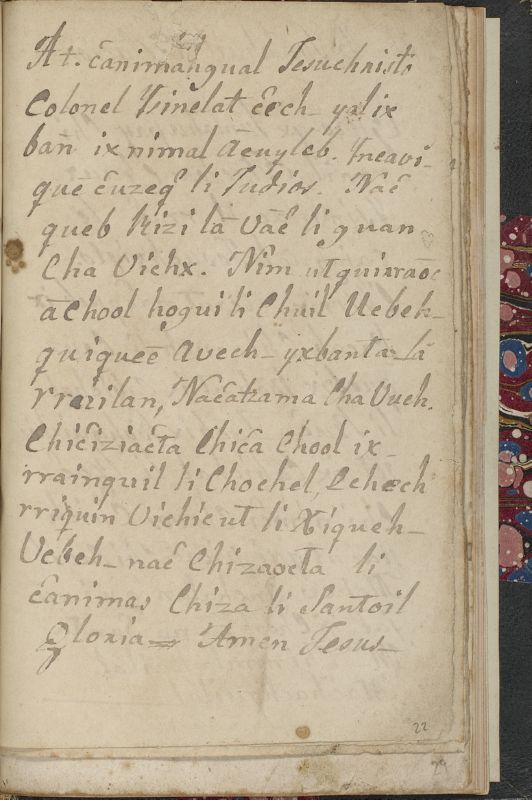 At. c̄animanqual Jesuchristo
Colonel Zinelat c̄ech yalix
ban ixnimal aeuyleb. Ineavi-
que c̄uzeq̄ li Judios. Nac̄
queb Kizi lā Vac̄ li quan
Cha Vichx. Nim ut quixraoc
ā Chool hogui li Chuil Uebeh-
quiquec̄ avech yxbanta lā
rraxilan, Nac̄atzama Cha Vuch.
Chic̄iziac̄ta Chic̄a Chool ix-
rrainquil li Chochel, Lehech
rriquin Vichic ut li Xiqueh
Uebeh nac̄ Chizaocta li
c̄animas Chiza li Santoil
Gloria Amen Jesus
22